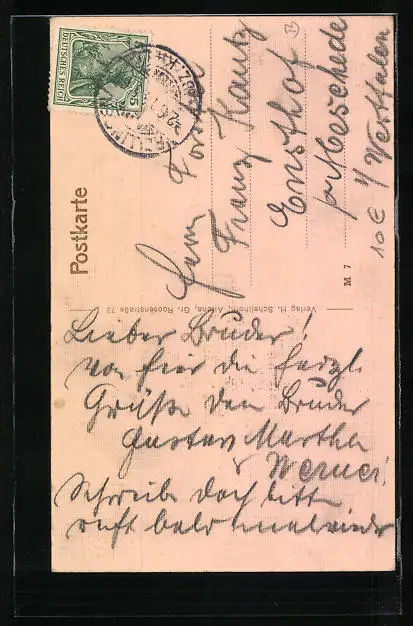 DEUTSCHES REICH
5
Postkarte
Herrn Förster
Franz Kautz
Ensthof
p/ Meschede
i/ Westfalen
10 €
B
Verlag H. Schellhorn, Altona, Gr. Roosenstraße 73
M 7
Lieber Bruder!
von hier die herzl.
Grüße Dein Bruder
Gustav Martha
Werner!
Schreibe doch bitte
recht bald mal wieder